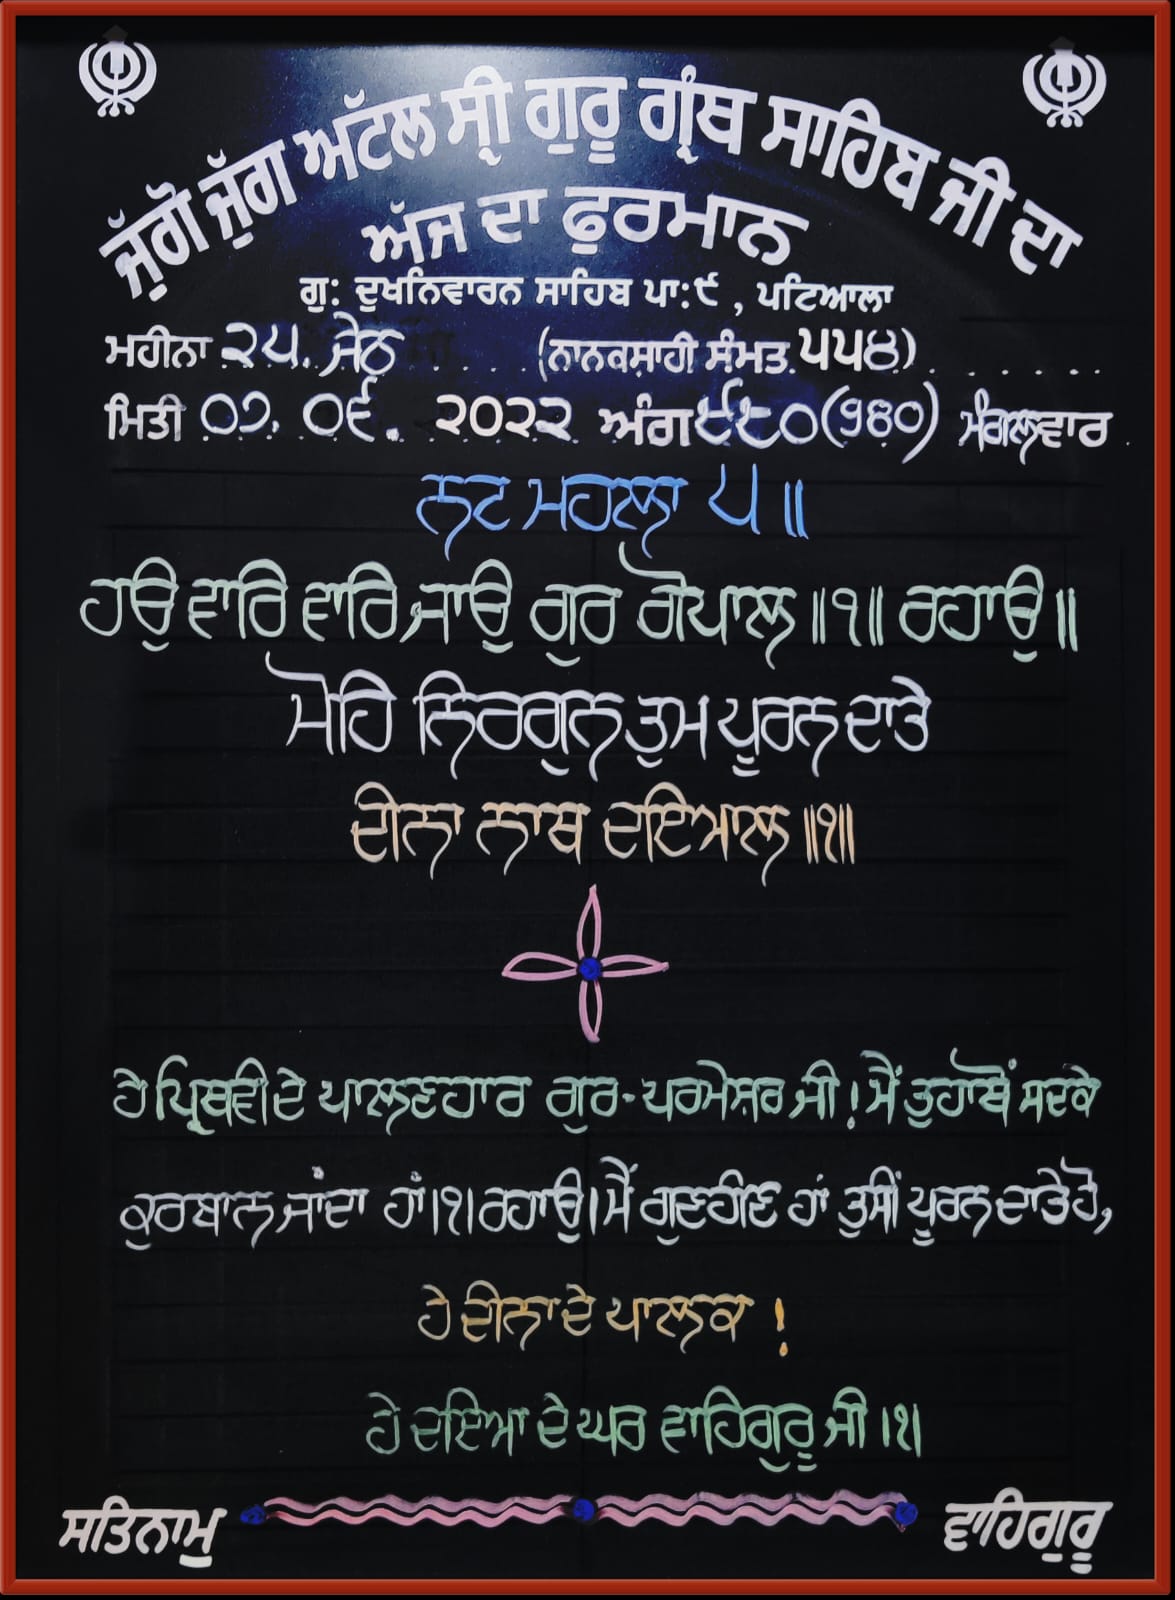 ਜੁੱਗੋ ਜੁੱਗ ਅਟੱਲ ਸ੍ਰੀ ਗੁਰੂ ਗ੍ਰੰਥ ਸਾਹਿਬ ਜੀ ਦਾ
ਅੱਜ ਦਾ ਫੁਰਮਾਨ
ਗੁ: ਦੁਖਨਿਵਾਰਨ ਸਾਹਿਬ ਪਾ:੯ , ਪਟਿਆਲਾ
ਮਹੀਨਾ ੨੫. ਜੇਠ (ਨਾਨਕਸ਼ਾਹੀ ਸੰਮਤ ੫੫੪)
ਮਿਤੀ ੦੭. ੦੬. ੨੦੨੨ ਅੰਗ ੯੮੦(੧੪੦) ਮੰਗਲਵਾਰ
ਨਟ ਮਹਲਾ ੫॥
ਹਉ ਵਾਰਿ ਵਾਰਿ ਜਾਉ ਗੁਰ ਗੋਪਾਲ॥੧॥ ਰਹਾਉ॥
ਮੋਹਿ ਨਿਰਗੁਨ ਤੁਮ ਪੂਰਨ ਦਾਤੇ
ਦੀਨਾ ਨਾਥ ਦਇਆਲ॥੧॥
ਹੇ ਪ੍ਰਿਥਵੀ ਦੇ ਪਾਲਣਹਾਰ ਗੁਰ-ਪਰਮੇਸ਼ਰ ਜੀ! ਮੈਂ ਤੁਹਾਥੋਂ ਸਦਕੇ
ਕੁਰਬਾਨ ਜਾਂਦਾ ਹਾਂ।੧।ਰਹਾਉ। ਮੈਂ ਗੁਣਹੀਣ ਹਾਂ ਤੁਸੀਂ ਪੂਰਨ ਦਾਤੇ ਹੋ,
ਹੇ ਦੀਨਾ ਦੇ ਪਾਲਕ !
ਹੇ ਦਇਆ ਦੇ ਘਰ ਵਾਹਿਗੁਰੂ ਜੀ ।੧।
ਸਤਿਨਾਮੁ ਵਾਹਿਗੁਰੂ